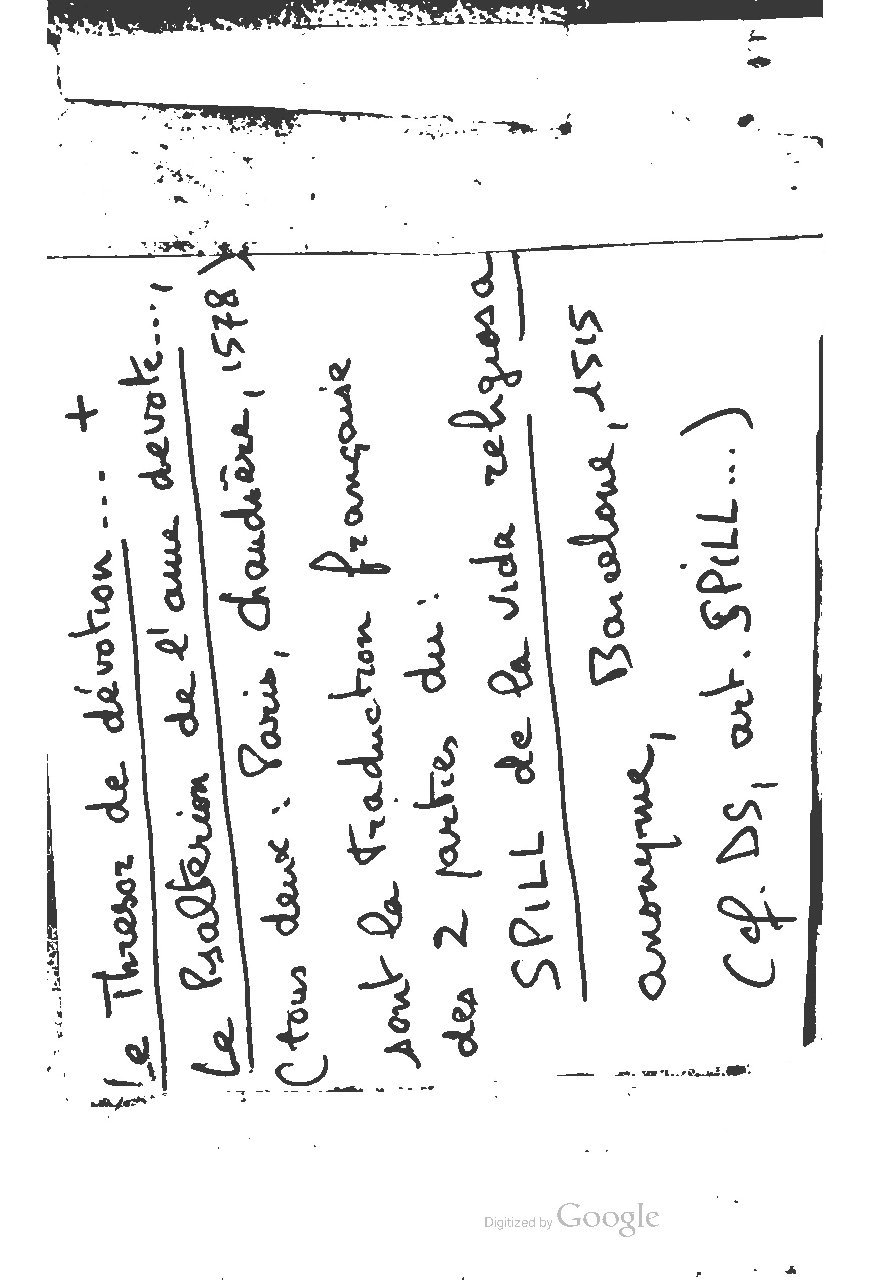 Le Thresor de dévotion... +
Le Psaltérion de l'ame devote...,
(tous deux : Paris, Chaudière, 1578)
sont la traduction française
des 2 parties du :
SPILL de la vida religiosa
anonyme, Barcelone, 1515
(cf. DS, art. SPILL...)
Digitized by Google